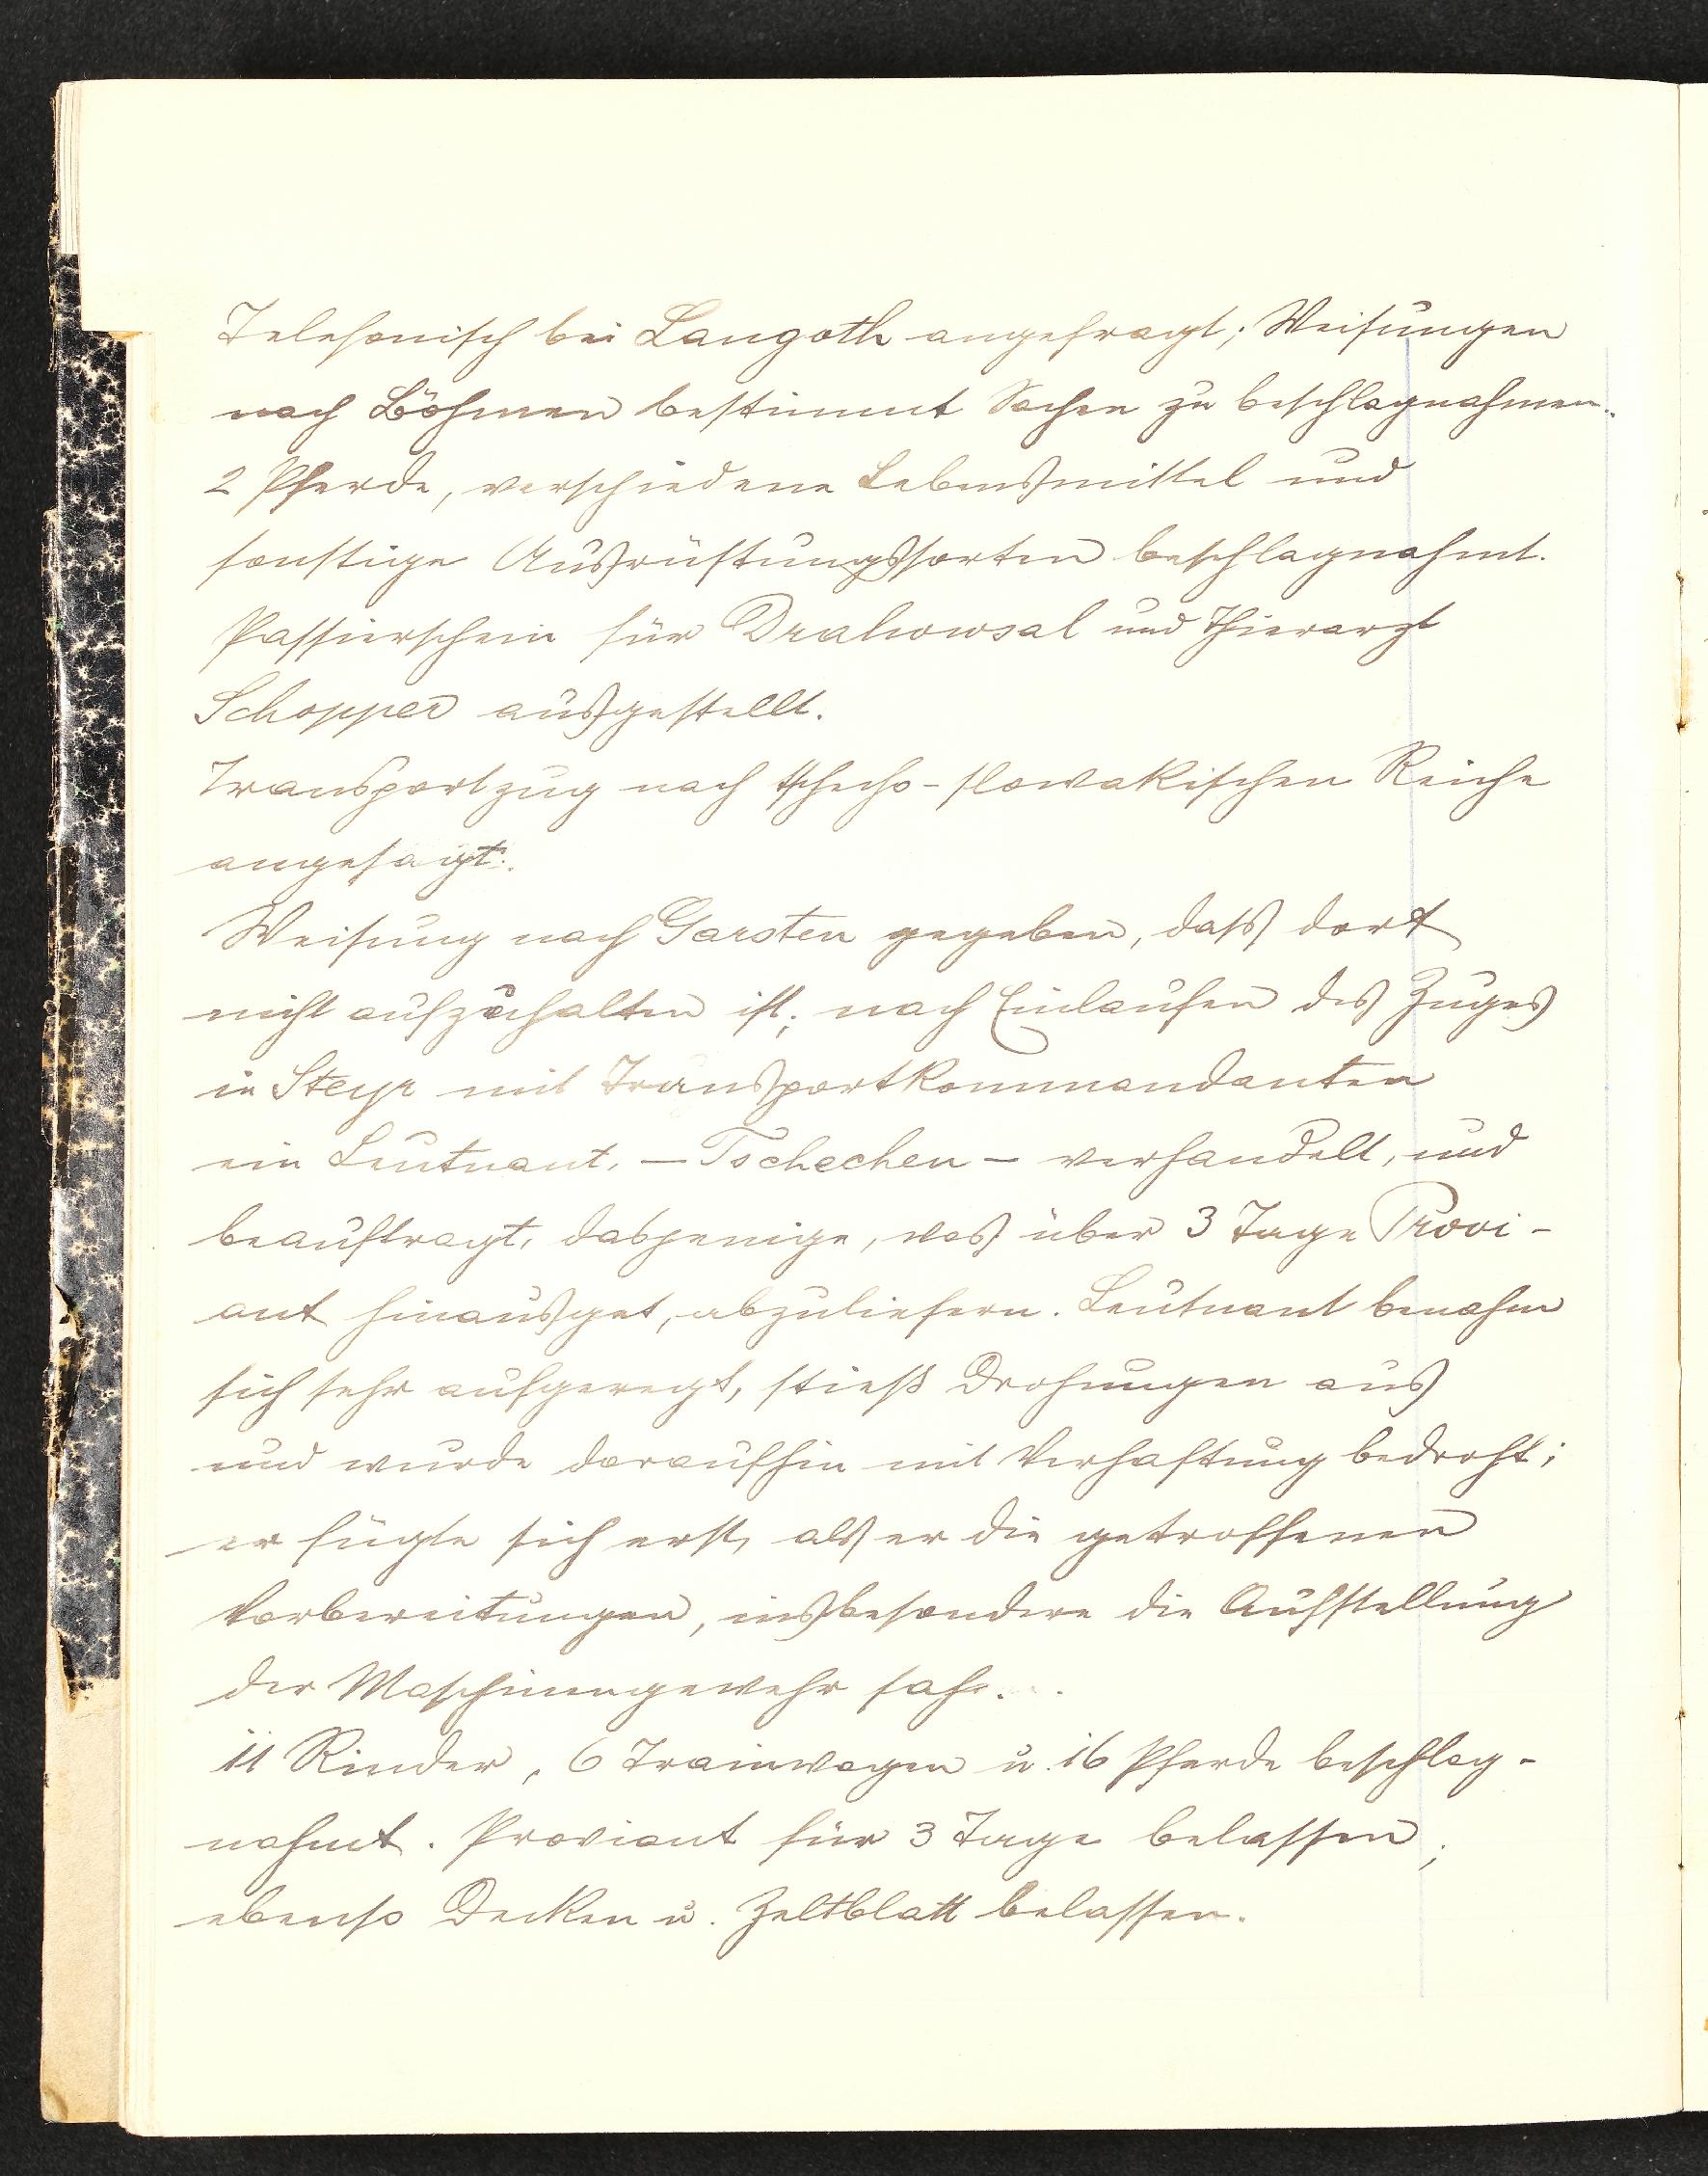 Telefonisch bei Langoth angefragt; Weisungen
nach Böhmen bestimmt Sachen zu beschlagnahmen.
2 Pferde, verschiedene Lebensmittel und
sonstige Ausrüstungssorten beschlagnahmt.
Passierschein für Drahowsal und Thierarzt
Schopper ausgestellt.
Transportzug nach tschecho-slowakischen Reiche
angesagt.
Weisung nach Garsten gegeben, dass dort
nicht aufzuhalten ist; nach Einlaufen des Zuges
in Steyr mit Transportkommandanten
ein Leutnant, – Tschechen – verhandelt, und
beauftragt, dasjenige, was über 3 Tage Provi-
ant hinausget, abzuliefern. Leutnant benahm
sich sehr aufgeregt, stieß Drohungen aus
und wurde daraufhin mit Verhaftung bedroht;
er fügte sich erst, als er die getroffenen
Vorbereitungen, insbesondere die Aufstellung
der Maschinengewehr sah.
11 Rinder, 6 Trainwagen u. 16 Pferde beschlag-
nahmt. Proviant für 3 Tage belassen;
ebenso Decken u. Zeltblatt belassen.